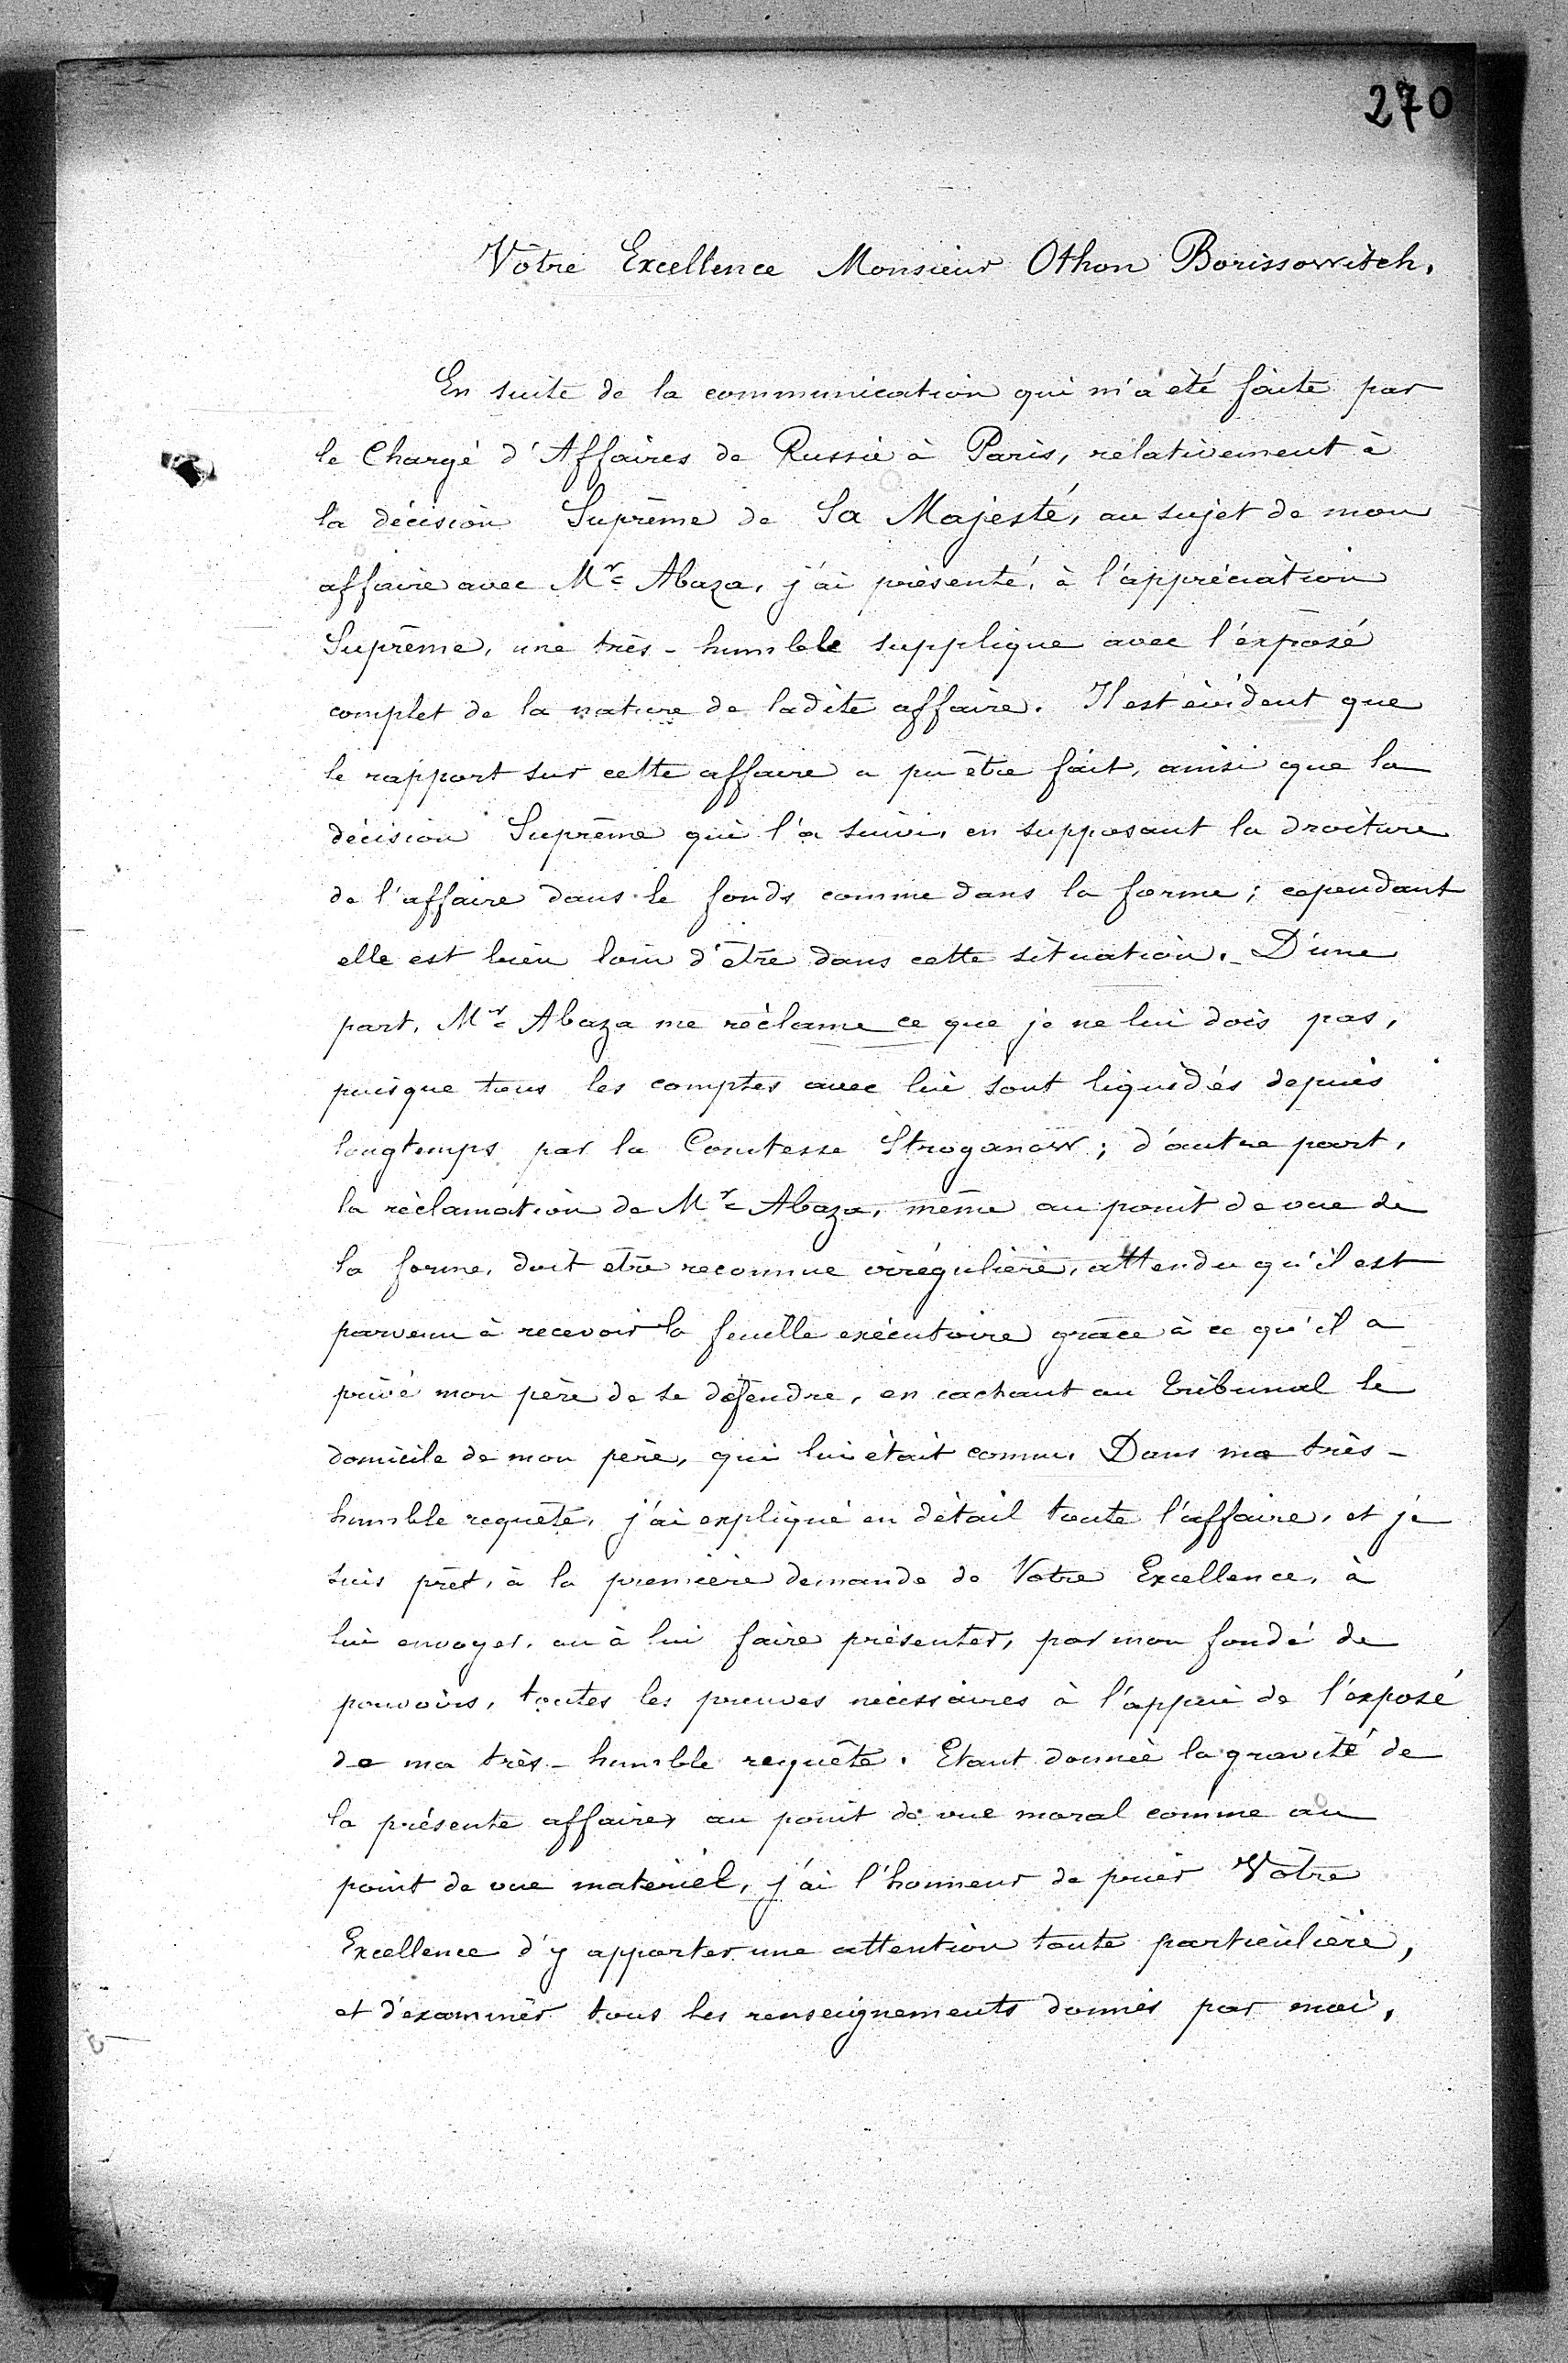 270
Vôtre Excellence Monsieur Othon Borissowitch.
En suite de la communication qui m'a été faite par
le Chargé d'Affaires de Russie à Paris, relativement à
la décision Suprême de Sa Majesté, au sujet de mon
affaire avec Mr Abaza, j'ai présenté, à l'appréciation
Suprême, une très-humble supplique avec l'exposé
complet de la nature de ladite affaire. Il est évident que
le rapport sur cette affaire a pu être fait, ainsi que la
décision Suprême qui l'a suivi, en supposant la droiture
de l'affaire dans le fonds comme dans la forme; cependant
elle est bien loin d'être dans cette situation. D'une
part, Mr Abaza me réclame ce que je ne lui dois pas,
puisque tous les comptes avec lui sont liquidés depuis
longtemps par la Comtesse Stroganow; d'autre part,
la réclamation de Mr Abaza, même au point de vue de
la forme, doit être reconnue irrégulière, attendu qu'il est
parvenu à recevoir la feuille exécutoire grâce à ce qu'il a
privé mon père de se défendre, en cachant au tribunal le
domicile de mon père, qui lui était connu. Dans ma très-
humble requête, j'ai expliqué en détail toute l'affaire, et je
suis prêt, à la première demande de Votre Excellence, à
lui envoyer, ou à lui faire présenter, par mon fondé de
pouvoirs, toutes les preuves nécessaires à l'appui de l'exposé
de ma très-humble requête. Etant donnée la gravité de
la présente affaire, au point de vue moral comme au
point de vue matériel, j'ai l'honneur de prier Vôtre
Excellence d'y apporter une attention toute particulière,
et d'examiner tous les renseignements donnés par moi,